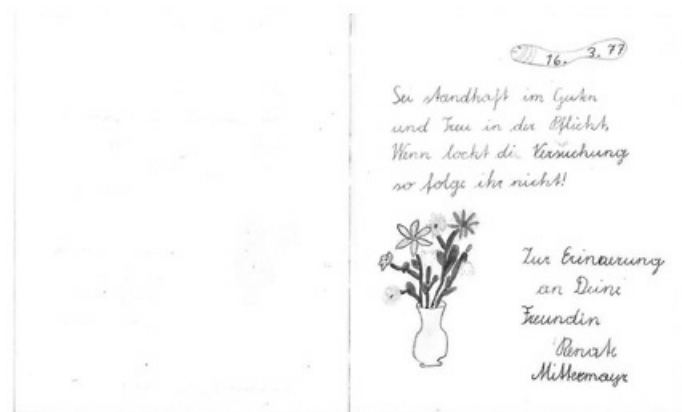 16. 3. 77
Sei standhaft im Guten
und Treu in der Pflicht,
Wenn lockt di Versuchung
so folge ihr nicht!
Zur Erinnerung
an Deine
Freundin
Renate
Mittermayr